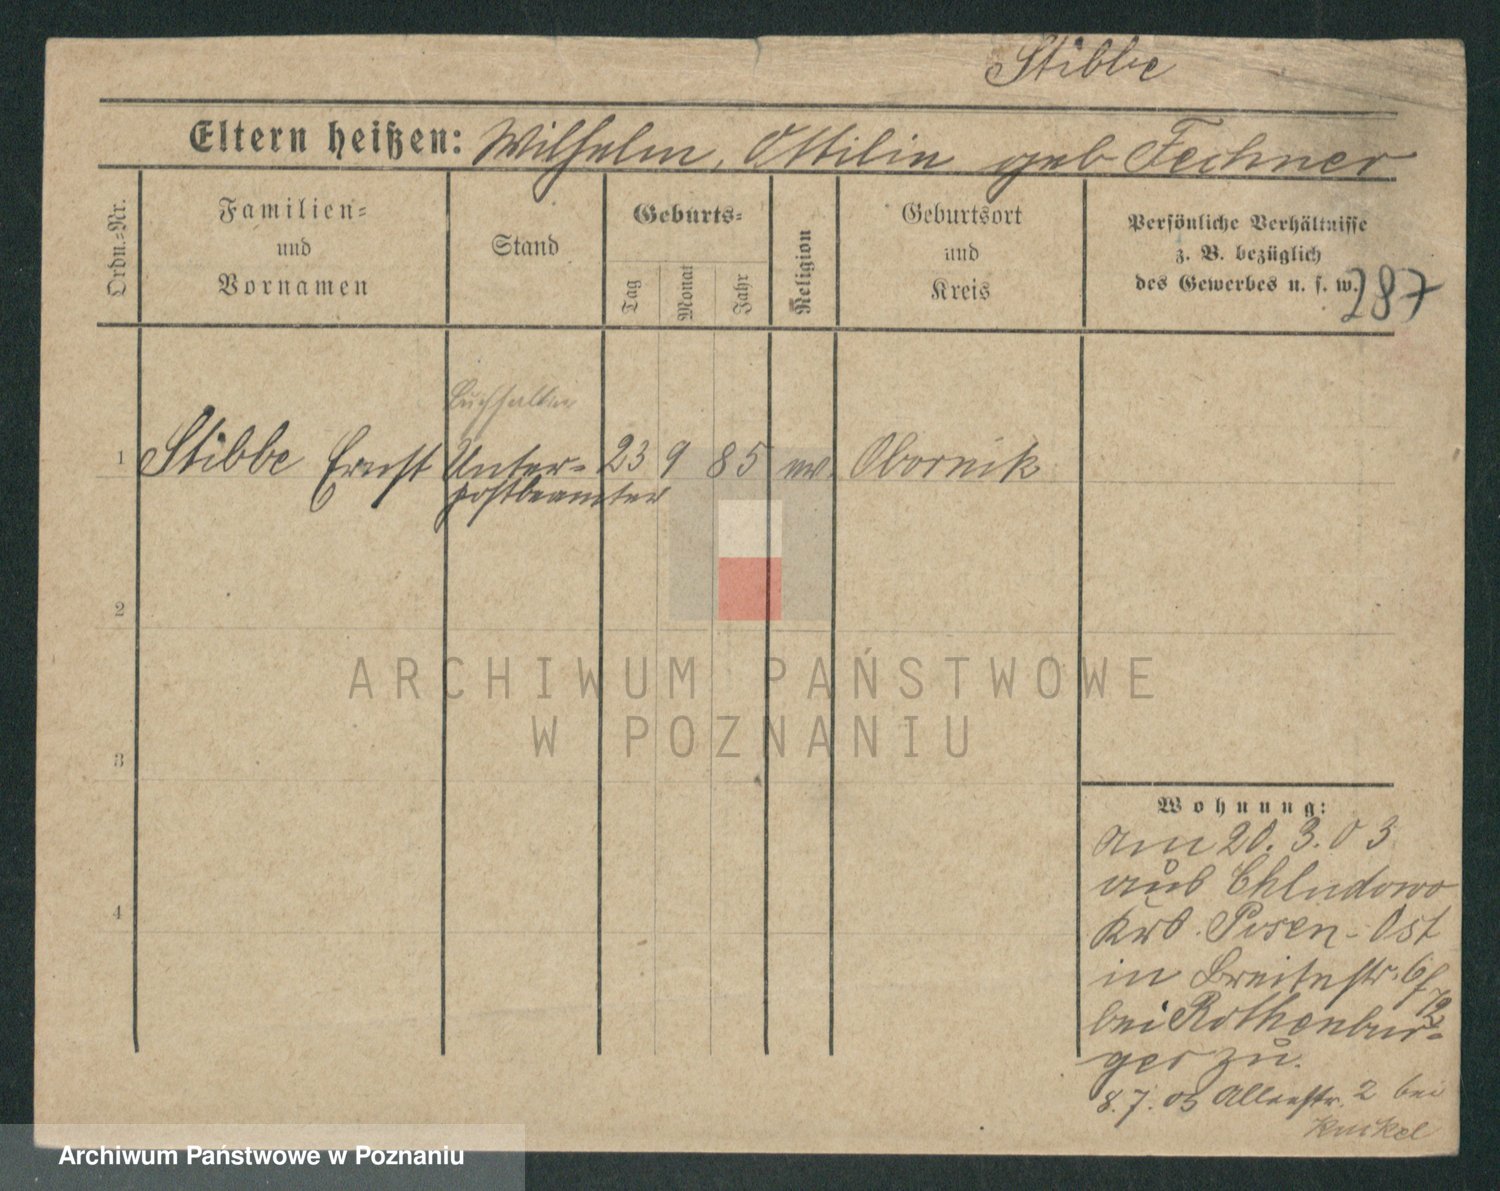 Stibbe
Eltern heißen: Wilhelm, Ottilie geb Fechner
Ordn.-Nr.
Familien-
und
Vornamen
Stand
Geburts-
Tag
Monat
Jahr
Religion
Geburtsort
und
Kreis
Persönliche Verhältnisse
z. B. bezüglich
des Gewerbes u. s. w.
287
Buchhalter
1 Stibbe Ernst Unter- 23 9 85 ev. Obornik
postbeamter
2
3
4
ARCHIWUM PAŃSTWOWE
W POZNANIU
Wohnung:
am 20. 3. 03
aus Chludowo
Krs. Posen-Ost
in Breitestr. 6
bei Rothenbur-
ger zu.
8. 7. 05 Alleestr. 2 bei
Archiwum Państwowe w Poznaniu